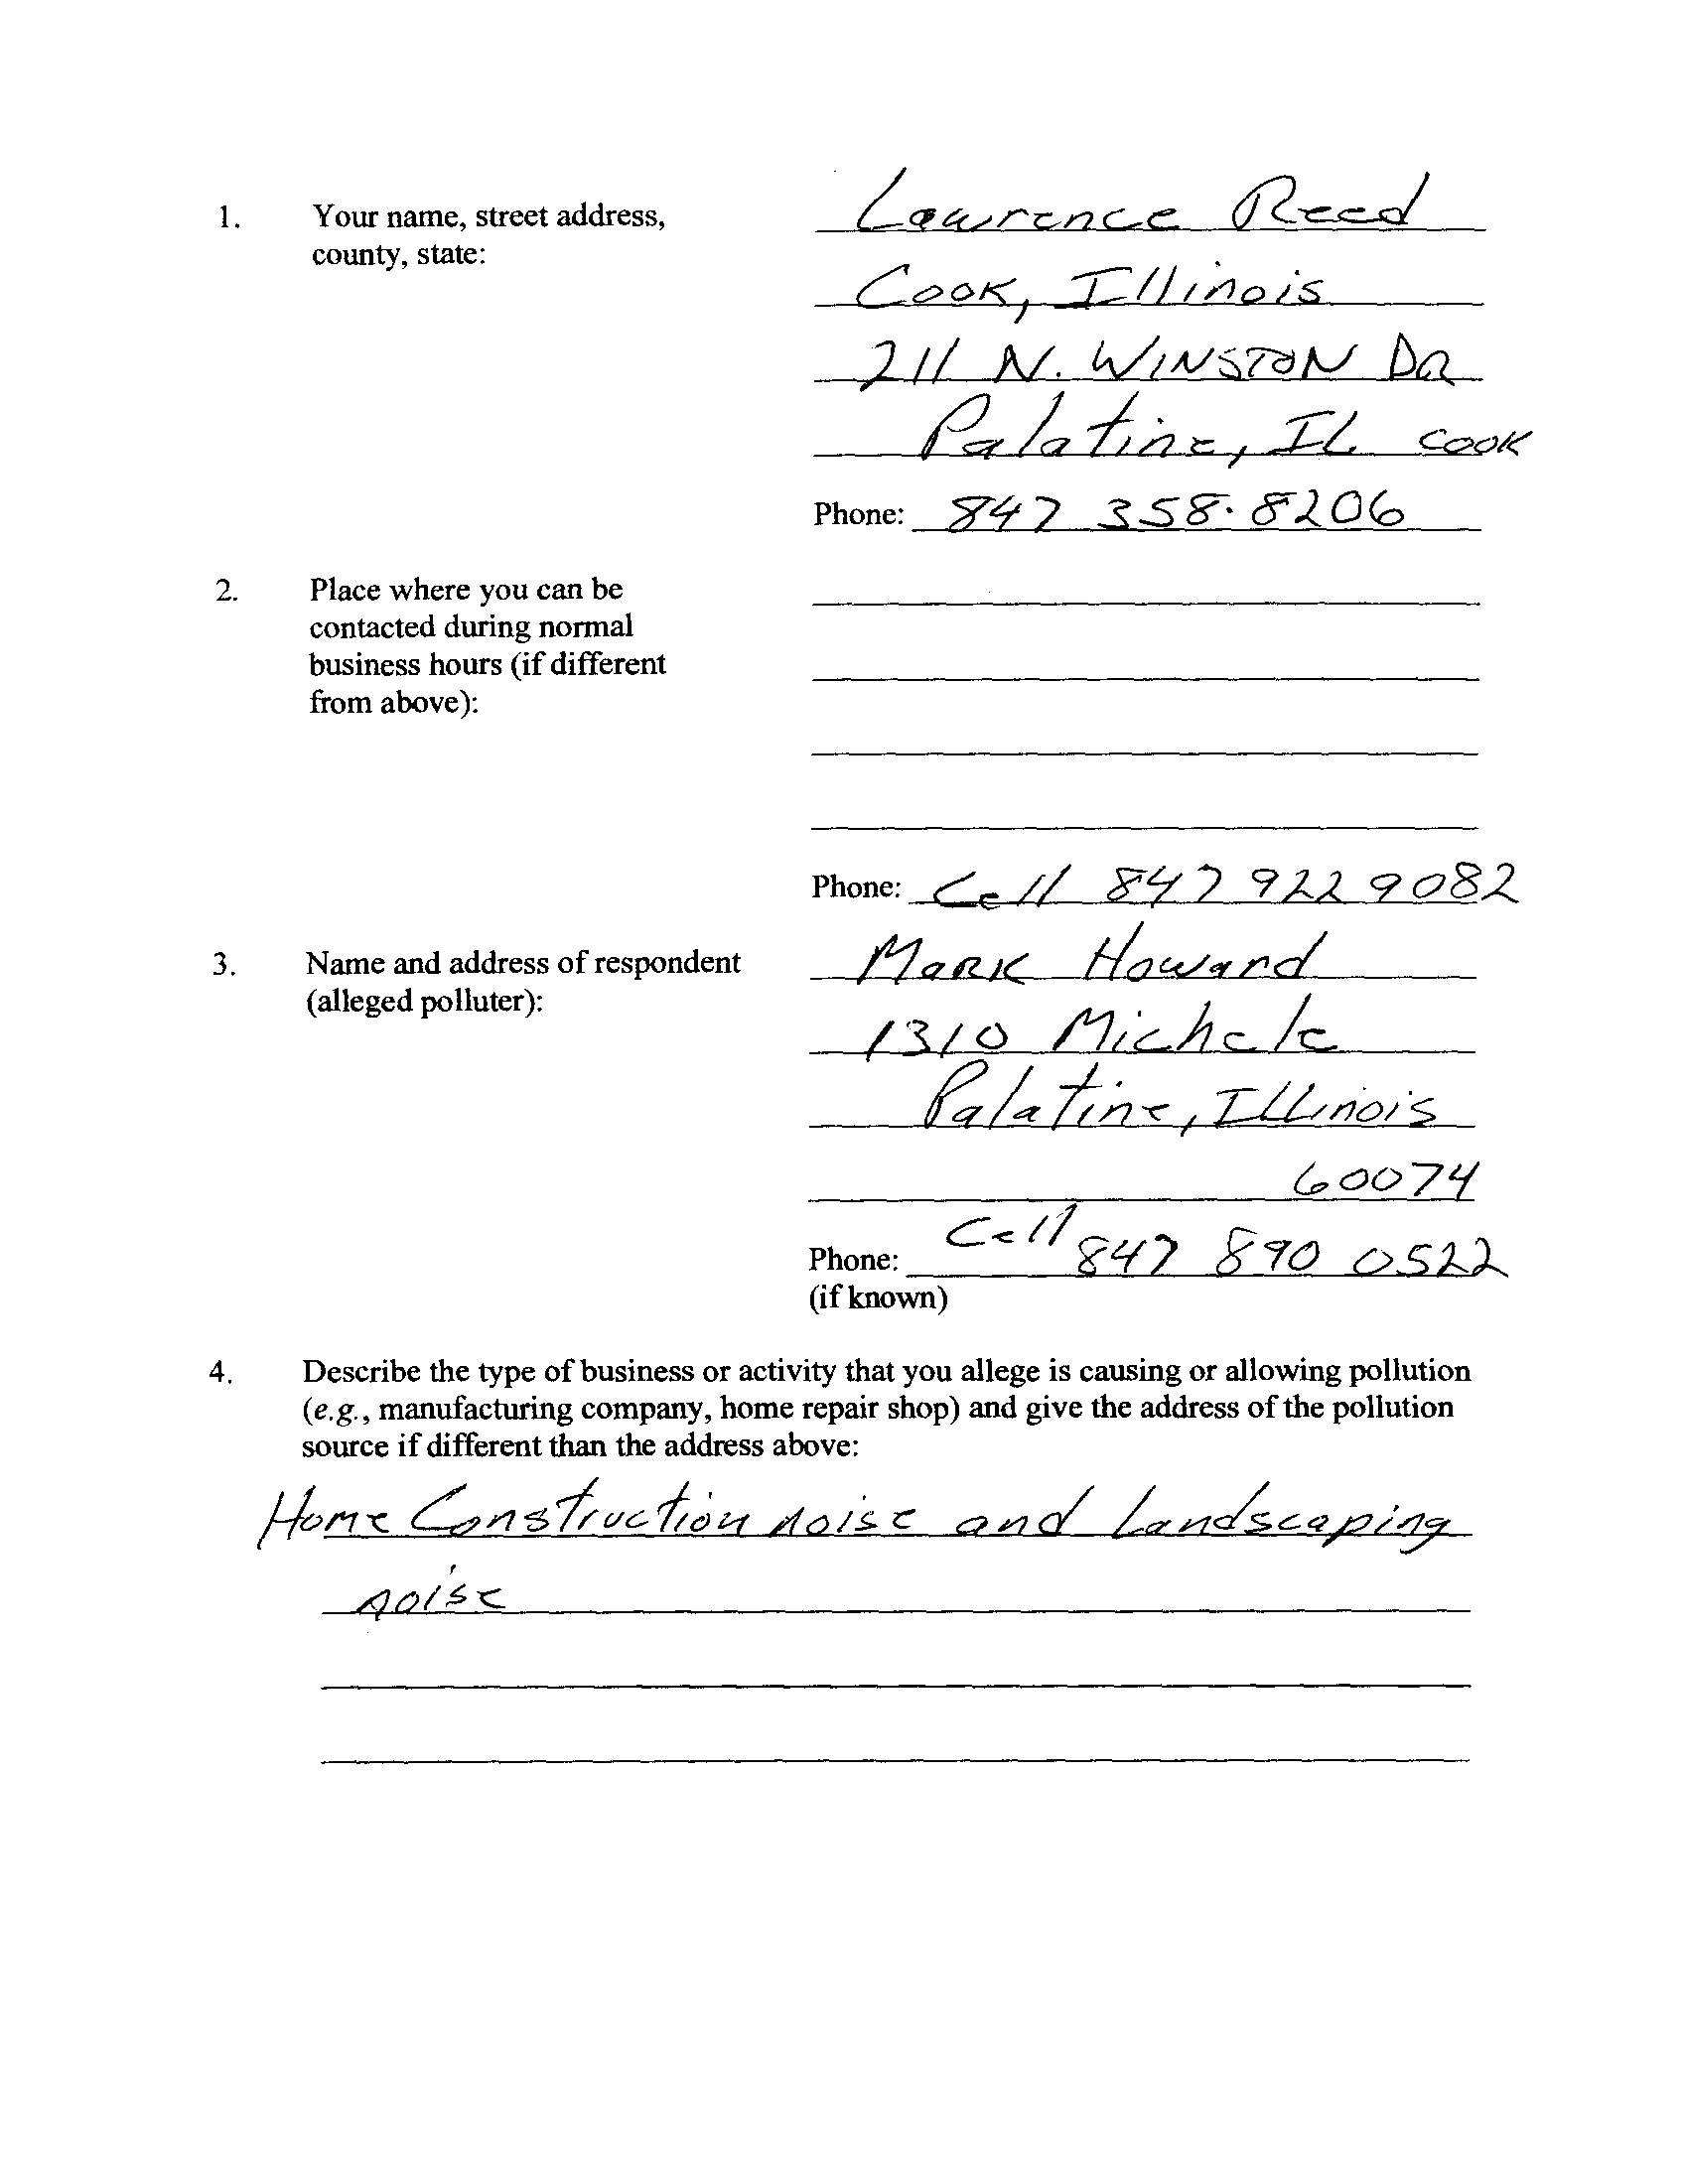 1. Your name, street address, Lawrence Reed
county, state:
Cook, Illinois
211 N. WINSTON DR
Palatine, IL cook
Phone: 847 358-8206
2. Place where you can be
contacted during normal
business hours (if different
from above):
Phone: Cell 847 922 9082
3. Name and address of respondent Mark Howard
(alleged polluter):
1310 Michele
Palatine, Illinois
60074
Phone: Cell 847 890 0522
(if known)
4. Describe the type of business or activity that you allege is causing or allowing pollution
(e.g., manufacturing company, home repair shop) and give the address of the pollution
source if different than the address above:
Home Construction noise and Landscaping
noise